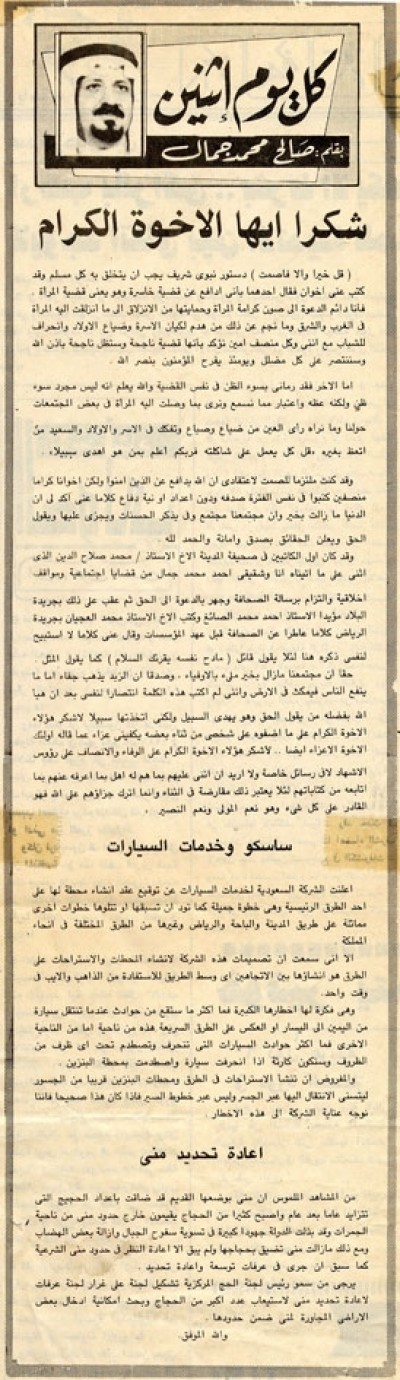 كل يوم إثنين
بقلم : صالح محمد جمال
شكرا ايها الاخوة الكرام
( قل خيرا والا فاصمت ) دستور نبوى شريف يجب ان يتخلق به كل مسلم وقد
كتب عنى اخوان فقال احدهما بأنى ادافع عن قضية خاسرة وهو يعنى قضية المرأة .
فأنا دائم الدعوة الى صون كرامة المرأة وحمايتها من الانزلاق الى ما انزلقت اليه المرأة
فى الغرب والشرق وما نجم عن ذلك من هدم لكيان الاسرة وضياع الاولاد وانحراف
للشباب مع اننى وكل منصف امين نؤكد بأنها قضية ناجحة وستظل ناجحة باذن الله
وستنتصر على كل مضلل ويومئذ يفرح المؤمنون بنصر الله .
اما الاخر فقد رمانى بسوء الظن فى نفس القضية والله يعلم انه ليس مجرد سوء
ظن ولكنه عظه واعتبار مما نسمع ونرى بما وصلت اليه المرأة فى بعض المجتمعات
حولنا وما نراه رأى العين من ضياع وصياع وتفكك فى الاسر والاولاد والسعيد من
اتعظ بغيره ،قل كل يعمل على شاكلته فربكم أعلم بمن هو اهدى سبيلاء .
وقد كنت ملتزما للصمت لاعتقادى ان الله يدافع عن الذين امنوا ولكن اخوانا كراما
منصفين كتبوا فى نفس الفترة صدفه ودون اعداد او نية دفاع كلاما عنى أكد لى ان
الدنيا ما زالت بخير وان مجتمعنا مجتمع وفى يذكر الحسنات ويجزى عليها ويقول
الحق ويعلن الحقائق بصدق وامانة والحمد لله .
وقد كان اول الكاتبين فى صحيفة المدينة الاخ الاستاذ / محمد صلاح الدين الذى
اثنى على ما اتيناه انا وشقيقى احمد محمد جمال من قضايا اجتماعية ومواقف
اخلاقية والتزام برسالة الصحافة وجهر بالدعوة الى الحق ثم عقب على ذلك بجريدة
البلاد مؤيدا الاستاذ احمد محمد الصائغ وكتب الاخ الاستاذ محمد العجيان بجريدة
الرياض كلاما عاطرا عن الصحافة قبل عهد المؤسسات وقال عنى كلاما لا استبيح
لنفسى ذكره هنا لئلا يقول قائل ( مادح نفسه يقرئك السلام ) كما يقول المثل .
حقا ان مجتمعنا مازال بخير ملىء بالاوفياء ، وصدقا ان الزبد يذهب جفاء اما ما
ينفع الناس فيمكث فى الارض واننى لم اكتب هذه الكلمة انتصارا لنفسى بعد ان هيأ
الله بفضله من يقول الحق وهو يهدى السبيل ولكنى اتخذتها سبيلا لاشكر هؤلاء
الاخوة الكرام على ما اضفوه على شخصى من ثناء بعضه يكفينى عزاء عما قاله اولئك
الاخوة الاعزاء ايضا .. لاشكر هؤلاء الاخوة الكرام على الوفاء والانصاف على رؤوس
الاشهاد لافى رسائل خاصة ولا اريد ان اثنى عليهم بما هم له اهل بما اعرفه عنهم بما
اتابعه من كتاباتهم لئلا يعتبر ذلك مقارضة فى الثناء وانما اترك جزاؤهم على الله فهو
القادر على كل شىء وهو نعم المولى ونعم النصير .
ساسكو وخدمات السيارات
اعلنت الشركة السعودية لخدمات السيارات عن توقيع عقد انشاء محطة لها على
احد الطرق الرئيسية وهى خطوة جميلة كما نود ان تسبقها او تتلوها خطوات اخرى
مماثلة على طريق المدينة والباحة والرياض وغيرها من الطرق المختلفة فى انحاء
المملكة
الا انى سمعت ان تصميمات هذه الشركة لانشاء المحطات والاستراحات على
الطرق هو انشاؤها بين الاتجاهين اى وسط الطريق للاستفادة من الذاهب والايب فى
وقت واحد .
وهى فكرة لها اخطارها الكبيرة فما اكثر ما ستقع من حوادث عندما تنتقل سيارة
من اليمين الى اليسار او العكس على الطرق السريعة هذه من ناحية اما من الناحية
الاخرى فما اكثر حوادث السيارات التى تنحرف وتصطدم تحت اى ظرف من
الظروف وستكون كارثة اذا انحرفت سيارة واصطدمت بمحطة البنزين .
والمفروض ان تنشأ الاستراحات فى الطرق ومحطات البنزين قريبا من الجسور
ليتسنى الانتقال اليها عبر الجسر وليس عبر خطوط السير فاذا كان هذا صحيحا فاننا
نوجه عناية الشركة الى هذه الاخطار .
اعادة تحديد منى
من المشاهد الملموس ان منى بوضعها القديم قد ضاقت باعداد الحجيج التى
تتزايد عاما بعد عام واصبح كثيرا من الحجاج يقيمون خارج حدود منى من ناحية
الجمرات وقد بذلت الدولة جهودا كبيرة فى تسوية سفوح الجبال وازالة بعض الهضاب
ومع ذلك مازالت منى تضيق بحجاجها ولم يبق الا اعادة النظر فى حدود منى الشرعية
كما سبق ان جرى فى عرفات توسعة واعادة تحديد .
يرجى من سمو رئيس لجنة الحج المركزية تشكيل لجنة على غرار لجنة عرفات
لاعادة تحديد منى لاستيعاب عدد اكبر من الحجاج وبحث امكانية ادخال بعض
الاراضى المجاورة لمنى ضمن حدودها .
والله الموفق